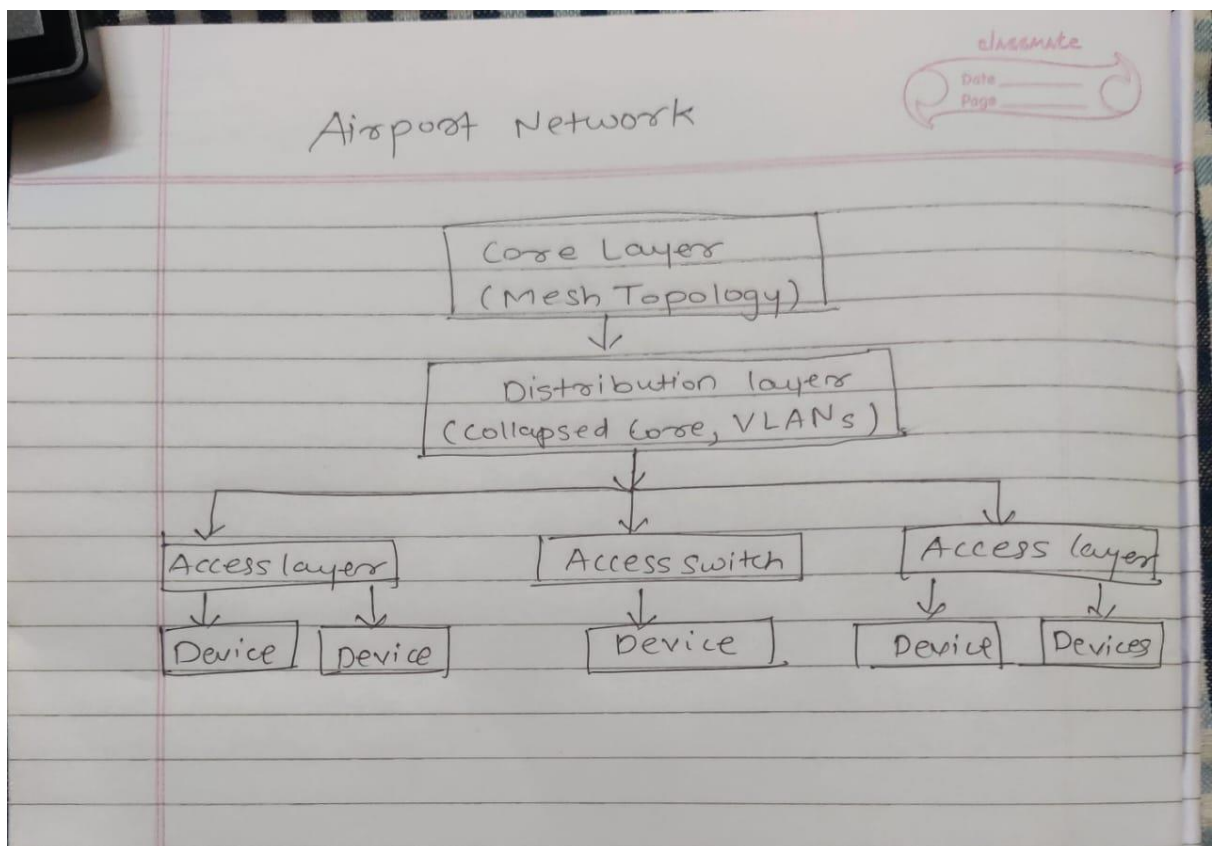 classmate
Date
Page
Airport Network
Core Layer
(Mesh Topology)
Distribution layer
(Collapsed Core, VLANs)
Access layer
Access switch
Access layer
Device
Device
Device
Device
Devices